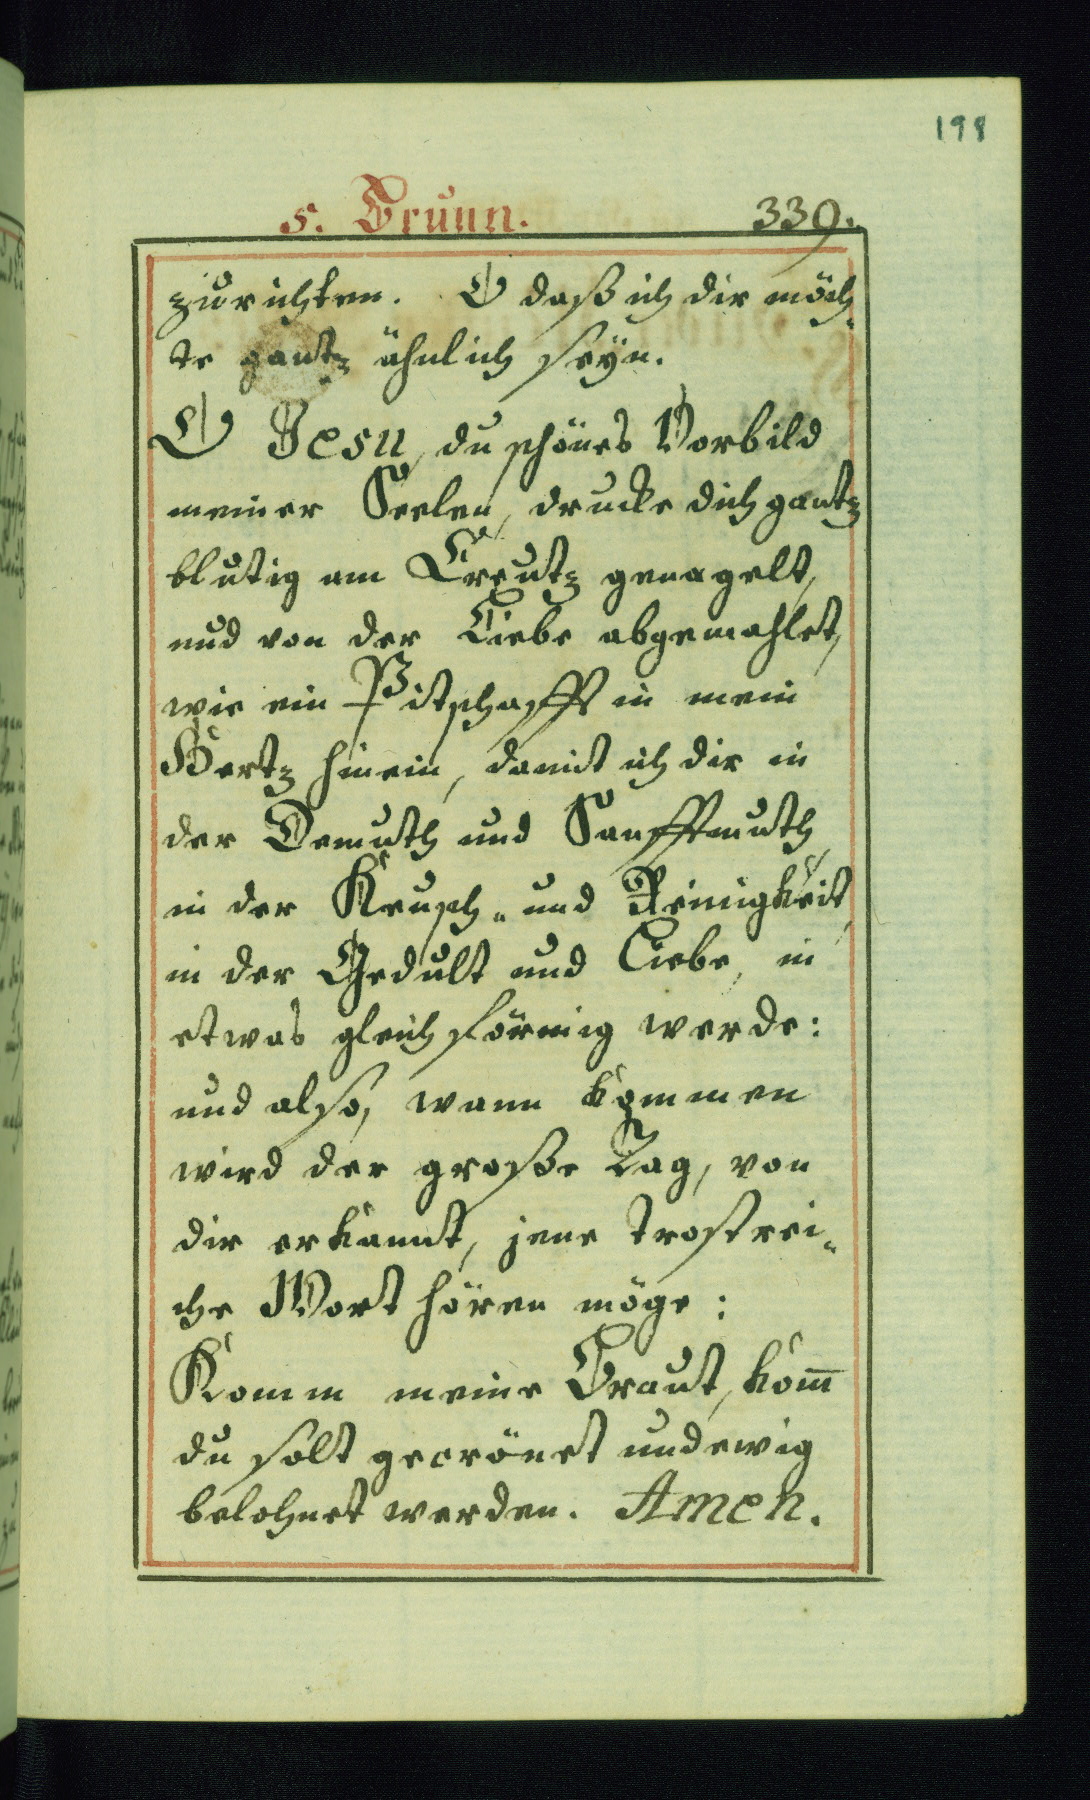 198
5. Brunn. 339.
zurichten. O daß ich dir möch„
te gantz ähnlich seÿn.
O Jesu, du schönes Vorbild
meiner Seelen, drucke dich gantz
blutig am Creutz genagelt,
und von der Liebe abgemahlet,
wie ein Pitschafft in mein
Hertz hinein, damit ich dir in
der Demuth und Sanfftmuth,
in der Keusch„ und Reinigkeit,
in der Gedult und Liebe, in
etwas gleichförmig werde:
und also, wann kommen
wird der große Tag, von
dir erkannt, jene trostrei„
che Wort hören möge:
Komm meine Braut, kom̅
du solt gecrönet und ewig
belohnet werden. Amen.